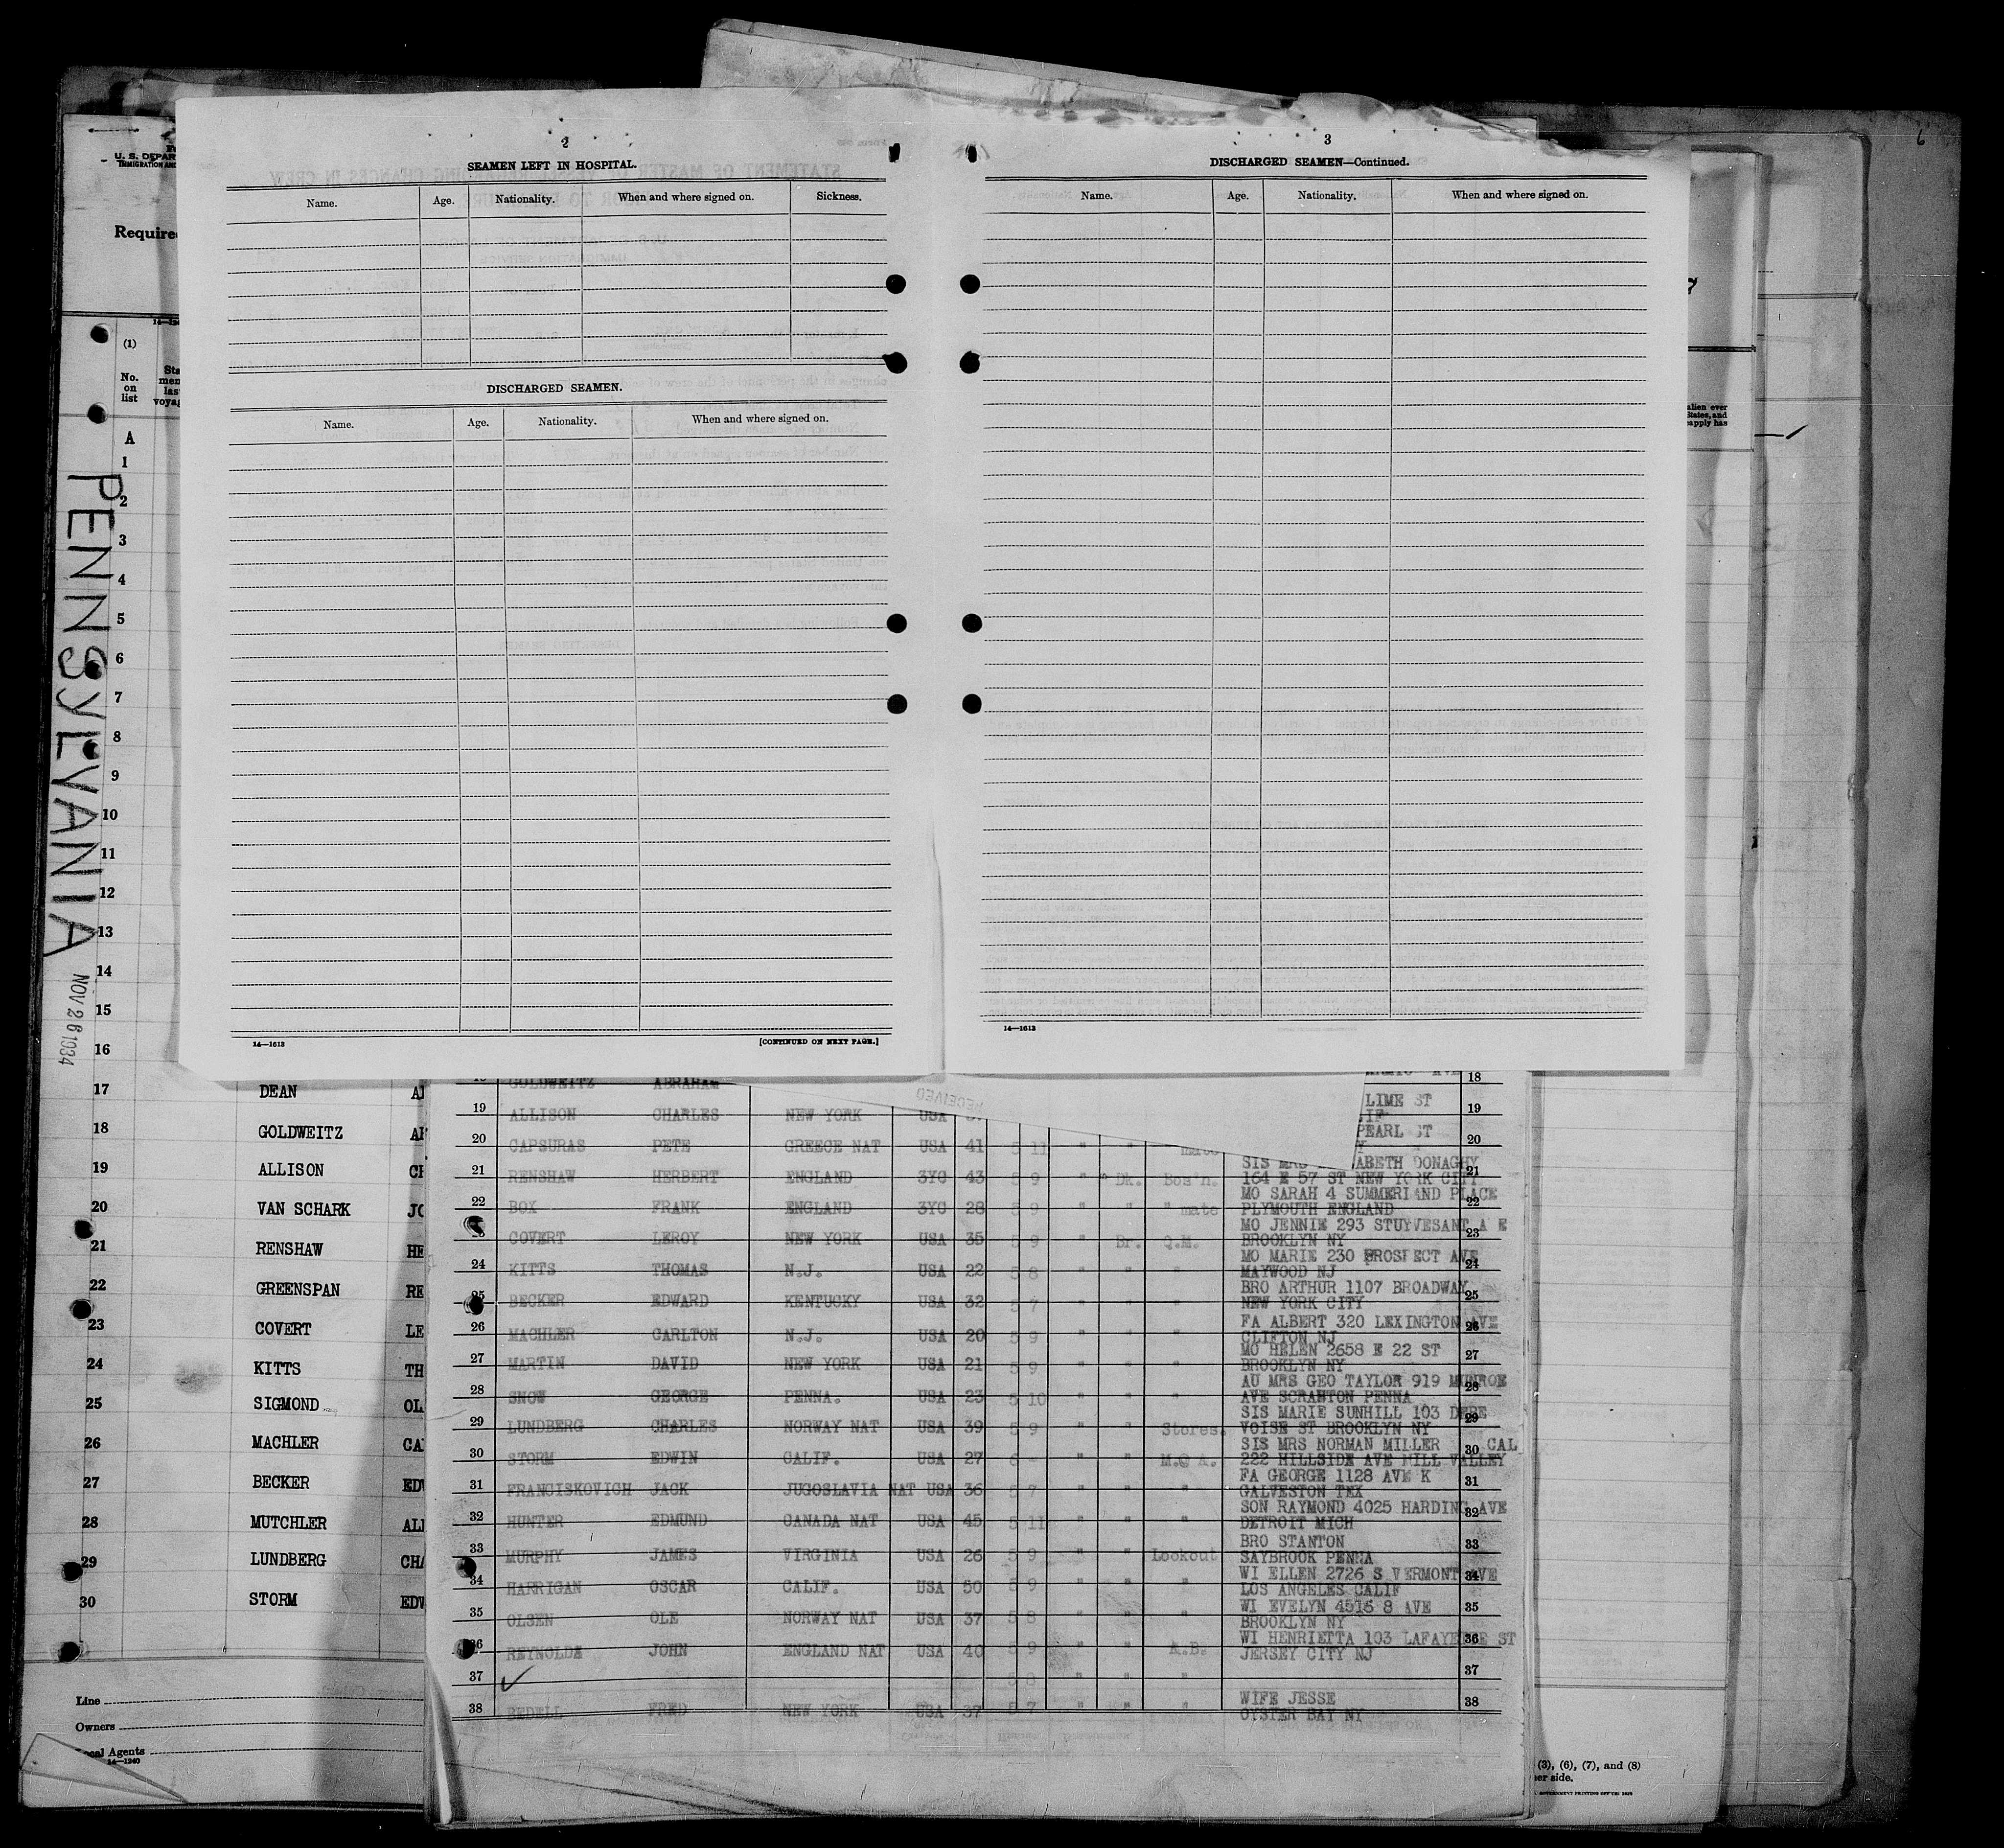 2
SEAMEN LEFT IN HOSPITAL.
Name. Age. Nationality. When and where signed on. Sickness.
DISCHARGED SEAMEN.
Name. Age. Nationality. When and where signed on.
14—1613
[CONTINUED ON NEXT PAGE.]
3
DISCHARGED SEAMEN—Continued.
Name. Age. Nationality. When and where signed on.
14—1613
6
U. S. DEPAR
IMMIGRATION AN
Require
(1)
No.
on
list
Sta
men
las
voyag
alien ever
States, and
apply has
PENNSYLVANIA
NOV 26 1934
A
1
2
3
4
5
6
7
8
9
10
11
12
13
14
15
16
17 DEAN
18 GOLDWEITZ
19 ALLISON
20 VAN SCHARK JO
21 RENSHAW HE
22 GREENSPAN RE
23 COVERT LE
24 KITTS TH
25 SIGMOND OL
26 MACHLER CA
27 BECKER ED
28 MUTCHLER AL
29 LUNDBERG CHA
30 STORM EDW
Line
Owners
Local Agents
14—1240
RECEIVED
GOLDWEITZ ABRAHAM 18
19 ALLISON CHARLES NEW YORK USA LIME ST 19
20 CAPSURAS PETE GREECE NAT USA 41 5 11 " " mate PEARL ST 20
SIS MRS ABETH DONAGHY
21 RENSHAW HERBERT ENGLAND 3YC 43 5 9 " Dk. Bos'n. 164 E 57 ST NEW YORK CITY 21
MO SARAH 4 SUMMERLAND PLACE
22 BOX FRANK ENGLAND 3YC 28 5 9 " " " mate PLYMOUTH ENGLAND 22
MO JENNIE 293 STUYVESANT A E
23 COVERT LEROY NEW YORK USA 35 5 9 " Br. Q.M. BROOKLYN NY 23
MO MARIE 230 PROSPECT AVE
24 KITTS THOMAS N.J. USA 22 5 8 " " " MAYWOOD NJ 24
BRO ARTHUR 1107 BROADWAY
25 BECKER EDWARD KENTUCKY USA 32 5 7 " " " NEW YORK CITY 25
FA ALBERT 320 LEXINGTON AVE
26 MACHLER CARLTON N.J. USA 20 5 9 " " " CLIFTON NJ 26
MO HELEN 2658 E 22 ST
27 MARTIN DAVID NEW YORK USA 21 5 9 " " " BROOKLYN NY 27
AU MRS GEO TAYLOR 919 MUNROE
28 SNOW GEORGE PENNA. USA 23 5 10 " " " AVE SCRANTON PENNA 28
SIS MARIE SUNHILL 103 DEBE
29 LUNDBERG CHARLES NORWAY NAT USA 39 5 9 " " Stores. VOISE ST BROOKLYN NY 29
SIS MRS NORMAN MILLER CAL
30 STORM EDWIN CALIF. USA 27 6 - " " M.O A. 222 HILLSIDE AVE MILL VALLEY 30
FA GEORGE 1128 AVE K
31 FRANCISKOVICH JACK JUGOSLAVIA NAT USA 36 5 7 " " " GALVESTON TEX 31
SON RAYMOND 4025 HARDING AVE
32 HUNTER EDMUND CANADA NAT USA 45 5 11 " " " DETROIT MICH 32
BRO STANTON
33 MURPHY JAMES VIRGINIA USA 26 5 9 " " Lookout SAYBROOK PENNA 33
WI ELLEN 2726 S VERMONT AVE
34 HARRIGAN OSCAR CALIF. USA 50 5 9 " " " LOS ANGELES CALIF 34
WI EVELYN 4516 8 AVE
35 OLSEN OLE NORWAY NAT USA 37 5 8 " " " BROOKLYN NY 35
WI HENRIETTA 103 LAFAYETTE ST
36 REYNOLDS JOHN ENGLAND NAT USA 40 5 9 " " A.B. JERSEY CITY NJ 36
37 5 8 " " " 37
WIFE JESSE
38 BEDELL FRED NEW YORK USA 37 5 7 " " " OYSTER BAY NY 38
(3), (6), (7), and (8)
er side.
GOVERNMENT PRINTING OFFICE